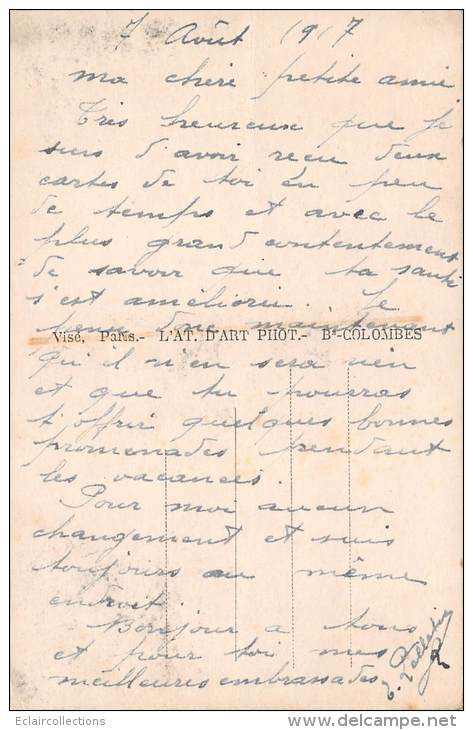 7 Août 1917
ma chère petite amie
Très heureux que je
suis d'avoir recu deux
cartes de toi en peu
de temps et avec le
plus grand contentement
de savoir que ta santé
s'est améliorer. Je
pense donc maintenant
Visé, Paris.- L'AT. D'ART PHOT.- Bs-COLOMBES
qu'il n'en sera rien
et que tu pourras
t'offrir quelques bonnes
promenades pendant
les vacances.
Pour moi aucun
changement et suis
toujours au même
endroit.
Bonjour a tous
et pour toi mes
meilleures embrassades
E. Pelletier
Eclaircollections
www.delcampe.net